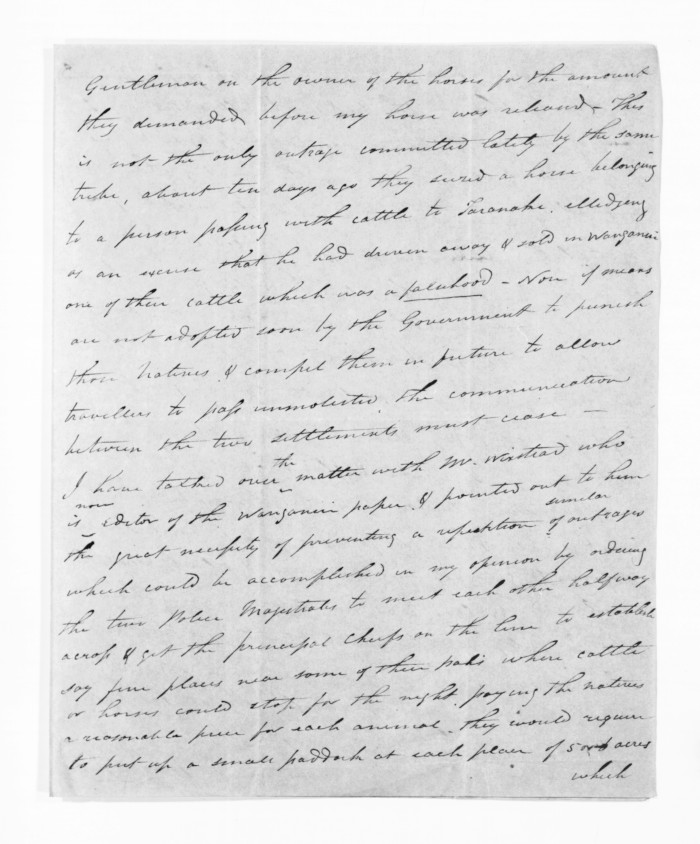 Gentleman on the owner of the horses for the amount
they demanded before my horse was released – This
is not the only outrage committed lately by the same
tribe, about ten days ago they seized a horse belonging
to a person passing with cattle to Taranaki, elledging
as an excuse that he had driven away & sold in Wanganui
one of their cattle which was a falsehood – Now if means
are not adopted soon by the Government to punish
those Natives & compel them in future to allow
travellers to pass unmolested the communication
between the two settlements must cease –
I have talked over the matter with Mr. who
is now editor of the Wanganui paper & pointed out to him
the great necessity of preventing a repetition of similar outrages
which could be accomplished in my opinion by ordering
the two Police Magistrates to meet each other halfway
across & get the principal Cheifs on the line to establish
say five places near some of their pahs where cattle
or horses could stop for the night, paying the natives
a reasonable price for each animal. they would require
to put up a small paddock at each place of 5 or 6 acres
which